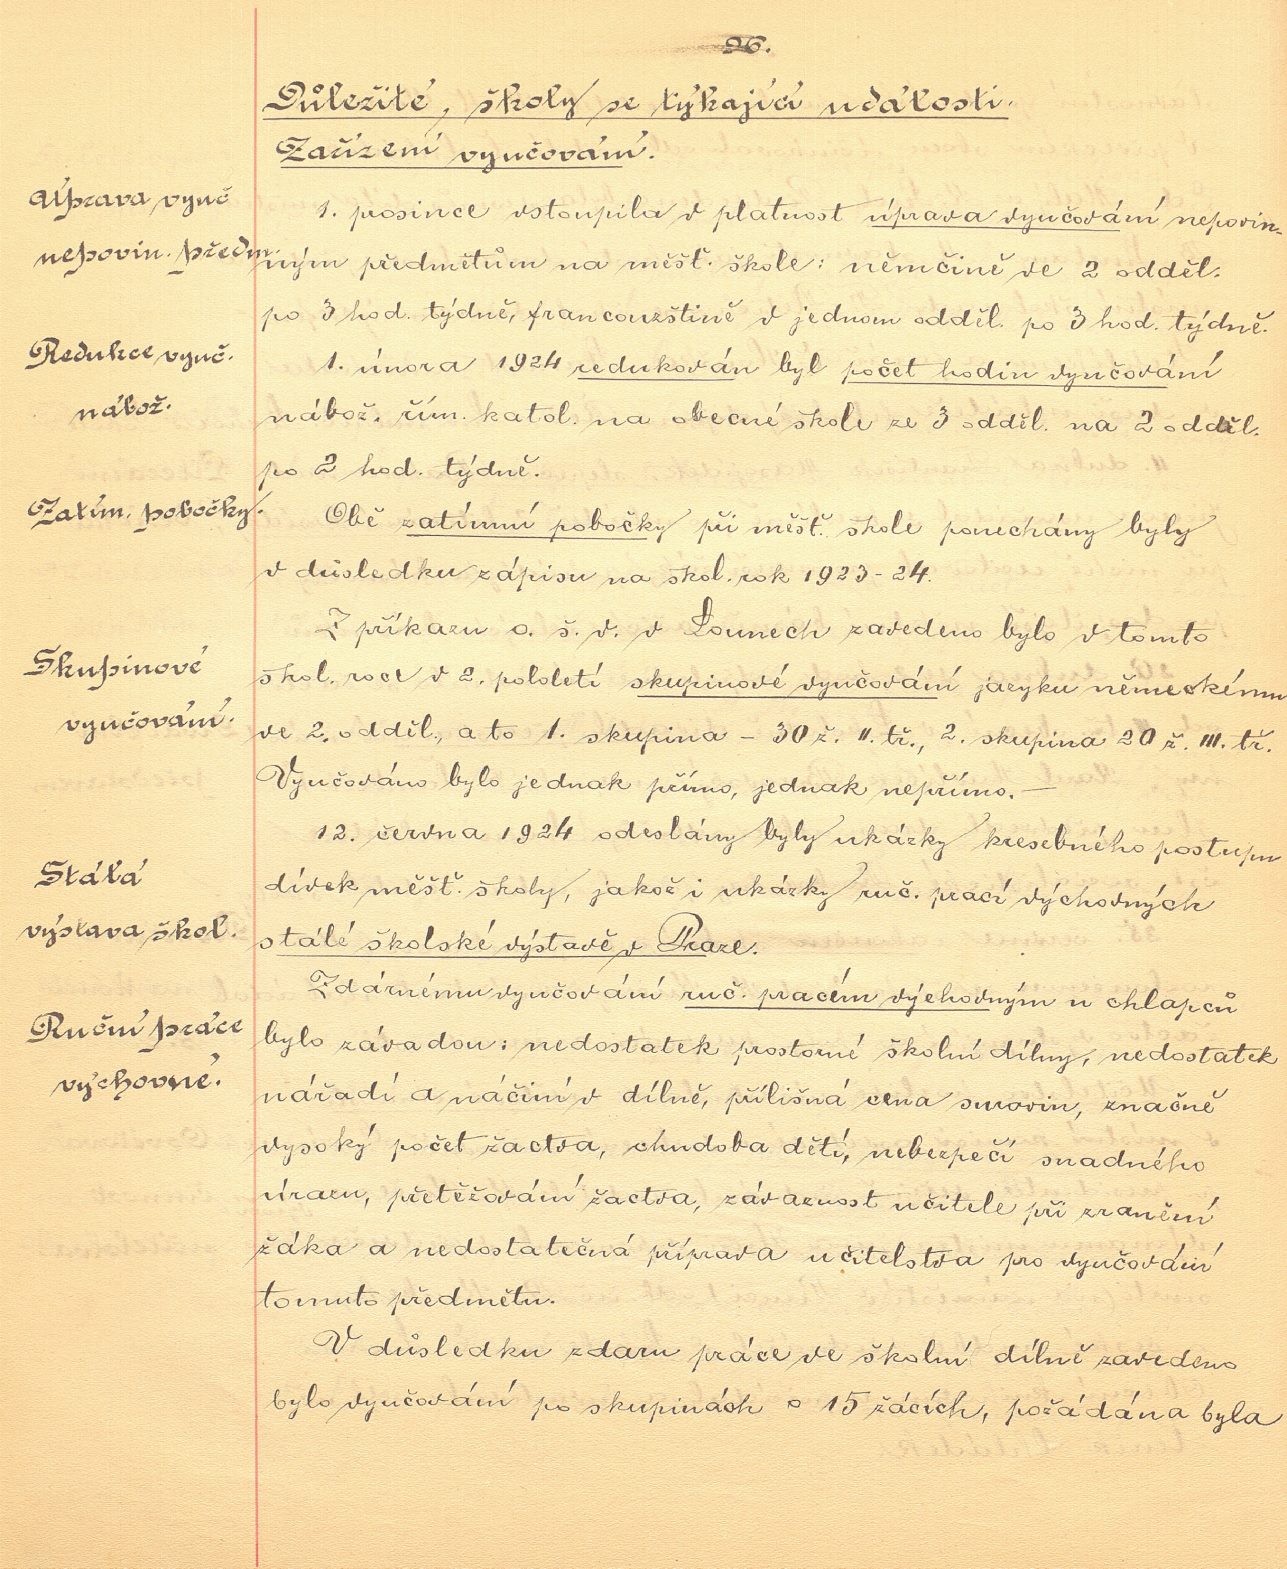 96.
Důležité, školy se týkající události.
Zařízení vyučování.
Úprava vyuč.
nepovin. předm.
1. prosince vstoupila v platnost úprava vyučování nepovin-
ným předmětům na měšť. škole: němčině ve 2 odděl.
po 3 hod. týdně, francouzštině v jednom odděl. po 3 hod. týdně.
Redukce vyuč.
nábož.
1. února 1924 redukován byl počet hodin vyučování
nábož. řím. katol. na obecné škole ze 3 odděl. na 2 odděl.
po 2 hod. týdně.
Zatím. pobočky.
Obě zatímní pobočky při měšť. škole ponechány byly
v důsledku zápisu na škol. rok 1923-24.
Z příkazu o. š. v. v Lounech zavedeno bylo v tomto
Skupinové
vyučování.
škol. roce v 2. pololetí skupinové vyučování jazyku německému
ve 2. odděl., a to 1. skupina – 30 ž. II. tř., 2. skupina 20 ž. III. tř.
Vyučováno bylo jednak přímo, jednak nepřímo. —
12. června 1924 odeslány byly ukázky kresebného postupu
Stálá
výstava škol.
dívek měšť. školy, jakož i ukázky ruč. prací výchovných
stálé školské výstavě v Praze.
Ruční práce
výchovné.
Zdárnému vyučování ruč. pracém výchovným u chlapců
bylo závadou: nedostatek prostorné školní dílny, nedostatek
nářadí a náčiní v dílně, přílišná cena surovin, značně
vysoký počet žactva, chudoba dětí, nebezpečí snadného
úrazu, přetěžování žactva, závaznost učitele při zranění
žáka a nedostatečná příprava učitelstva pro vyučování
tomuto předmětu.
V důsledku zdaru práce ve školní dílně zavedeno
bylo vyučování po skupinách o 15 žácích, požádána byla